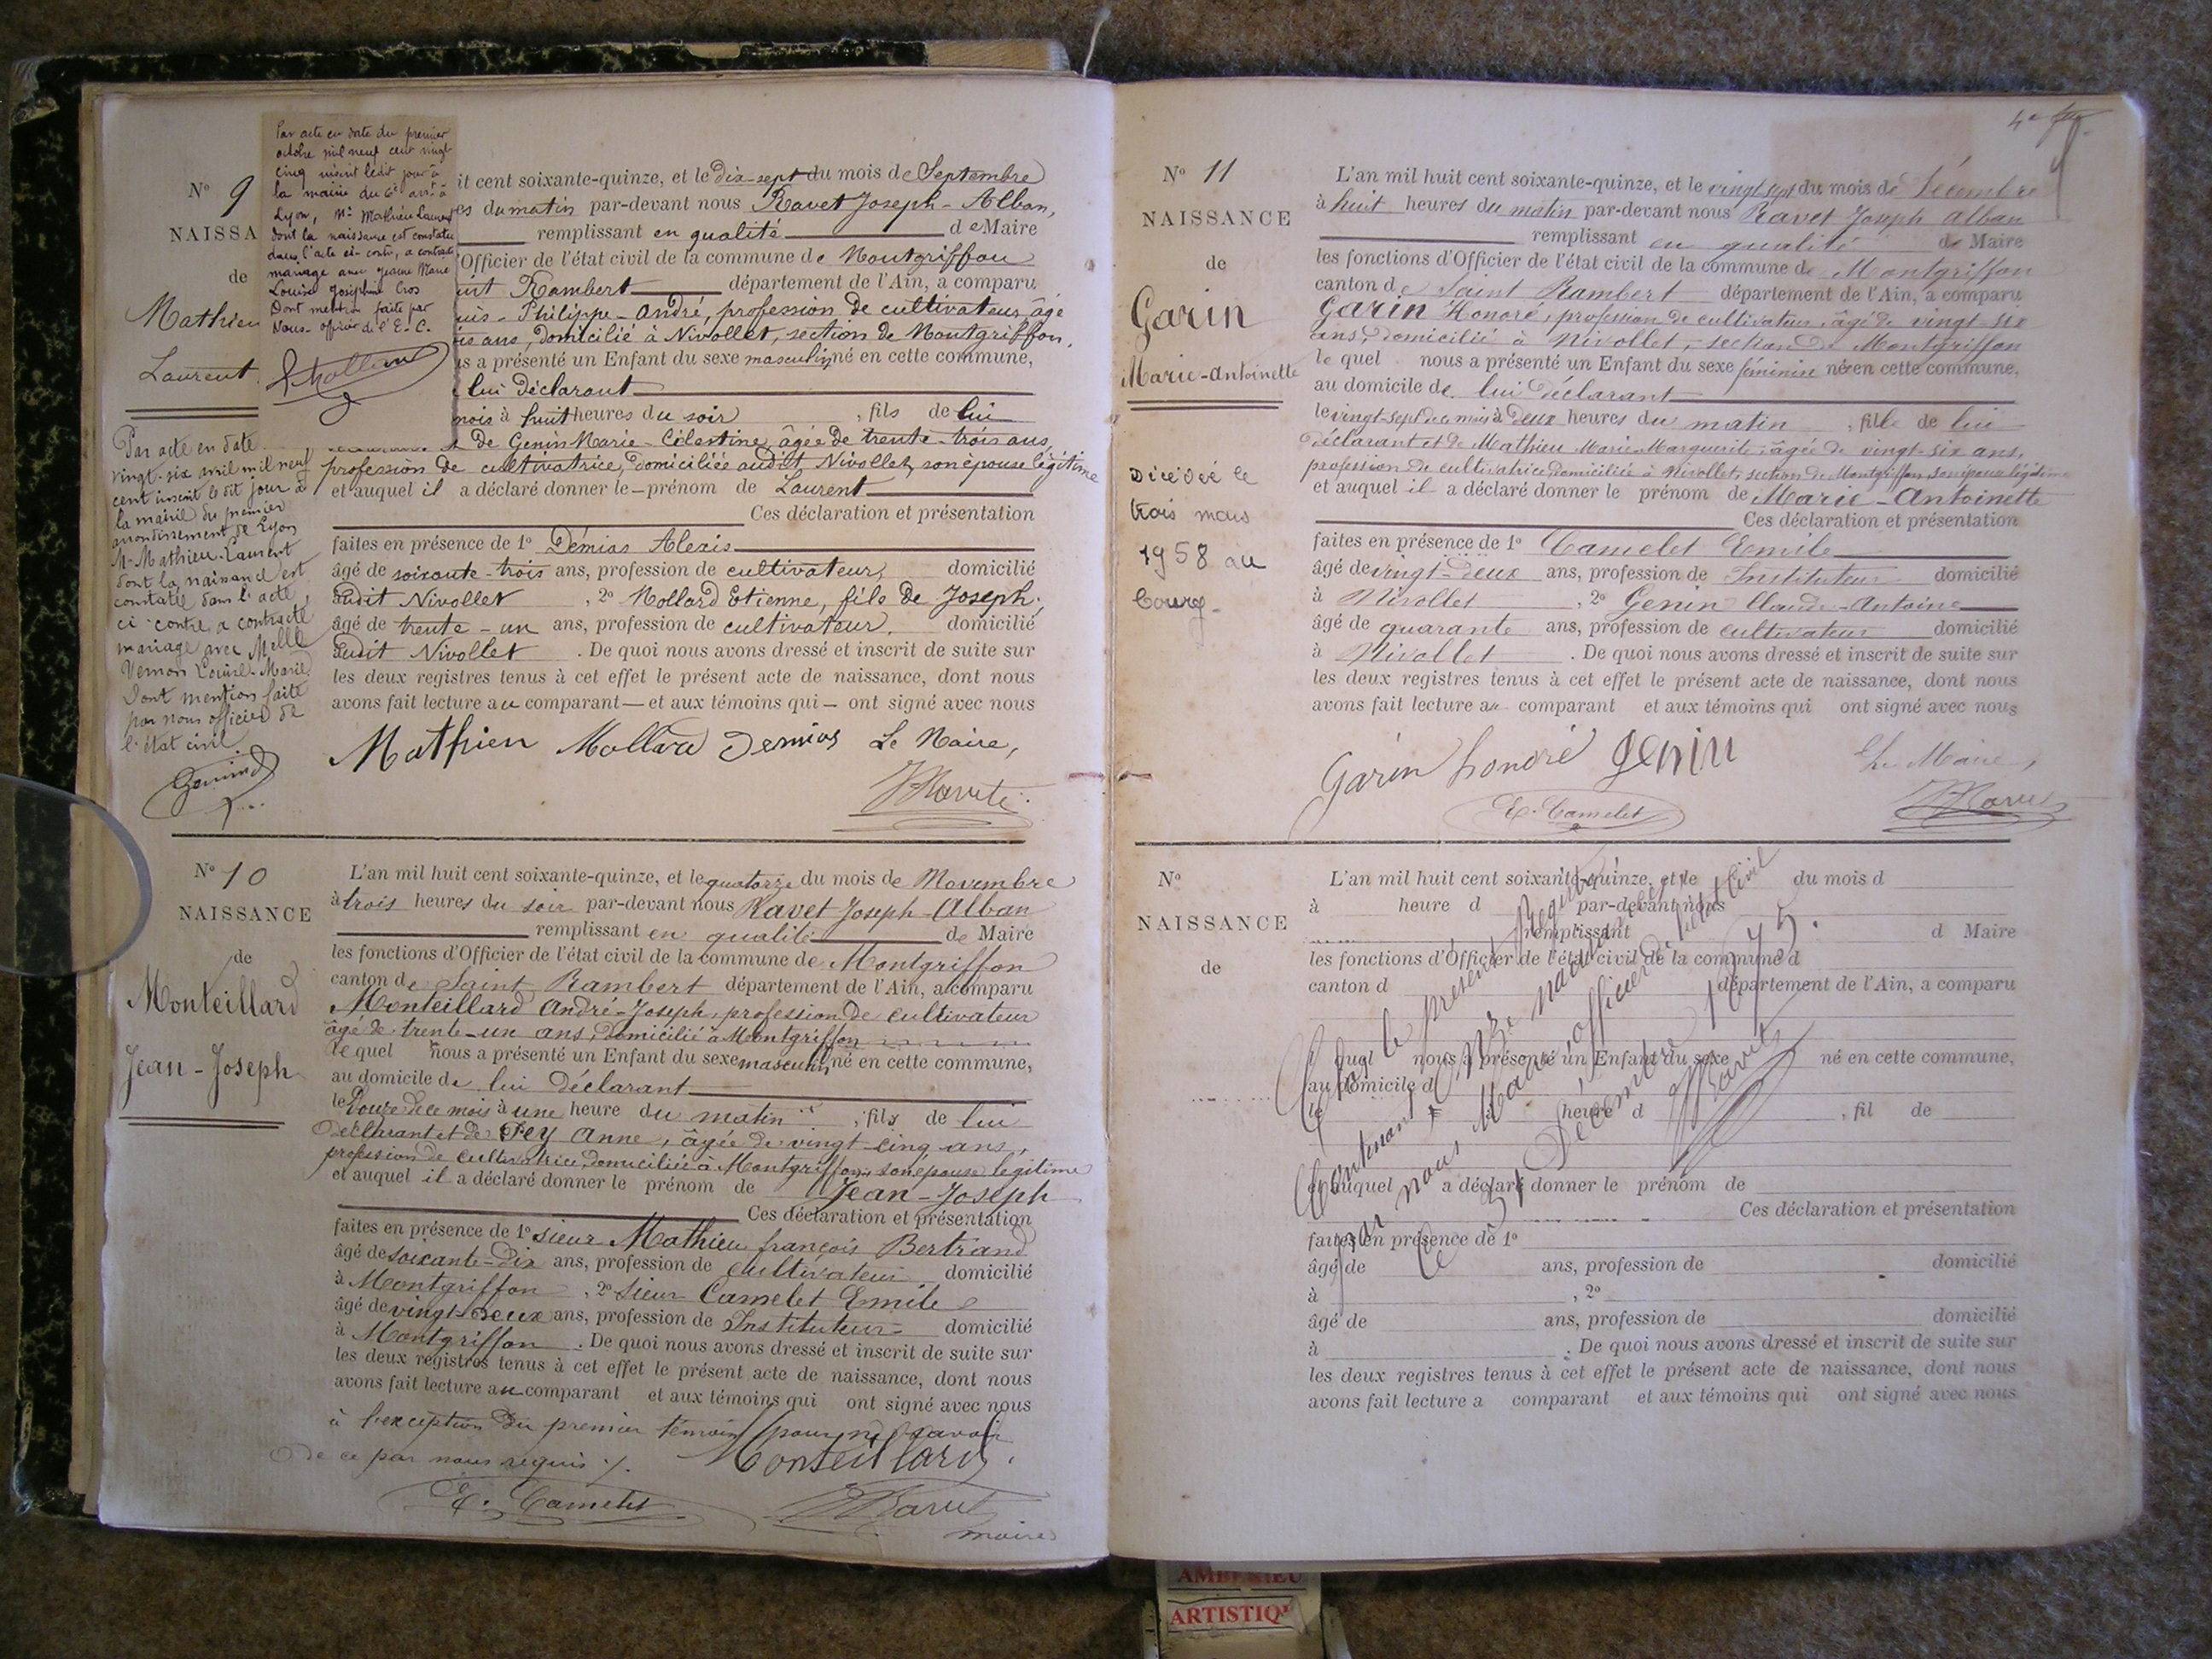 Par acte en date du premier
octobre mil neuf cent vingt
cinq inscrit ledit jour à
la mairie du 6e arrt à
Lyon, Mr Mathieu Laurent
dont la naissance est constatée
dans l'acte ci-contre, a contracté
mariage avec Jeanne Marie
Louise Joséphine Cros
Dont mention faite par
Nous officier de l'E. C.
No 9
NAISSA
de
Mathieu
Laurent
it cent soixante-quinze, et le dix-sept du mois de Septembre
es du matin par-devant nous Ravet Joseph-Alban,
remplissant en qualité de Maire
Officier de l'état civil de la commune de Montgriffon
int Rambert département de l'Ain, a comparu
uis-Philippe-André, profession de cultivateur, âgé
is ans, domicilié à Nivollet, section de Montgriffon,
us a présenté un Enfant du sexe masculin, né en cette commune,
lui déclarant
mois à huit heures du soir, fils de lui
de Genin Marie-Célestine, âgée de trente-trois ans,
profession de cultivatrice, domiciliée audit Nivollet, son épouse légitime
et auquel il a déclaré donner le prénom de Laurent
Ces déclaration et présentation
faites en présence de 1o Démias Alexis
âgé de soixante-trois ans, profession de cultivateur, domicilié
audit Nivollet, 2o Mollard Etienne, fils de Joseph,
âgé de trente-un ans, profession de cultivateur, domicilié
audit Nivollet. De quoi nous avons dressé et inscrit de suite sur
les deux registres tenus à cet effet le présent acte de naissance, dont nous
avons fait lecture au comparant et aux témoins qui ont signé avec nous
Mathieu Mollard Demias Le Maire,
Par acte en date
vingt-six avril mil neuf
cent inscrit le dit jour à
la mairie du premier
arrondissement de Lyon
Mr Mathieu Laurent
dont la naissance est
constatée dans l'acte
ci-contre, a contracté
mariage avec Melle
Vernon Louise-Marie
Dont mention faite
par nous officier de
l'état civil
No 10
NAISSANCE
de
Monteillard
Jean-Joseph
L'an mil huit cent soixante-quinze, et le quatorze du mois de Novembre
à trois heures du soir par-devant nous Ravet Joseph-Alban
remplissant en qualité de Maire
les fonctions d'Officier de l'état civil de la commune de Montgriffon
canton de Saint Rambert département de l'Ain, a comparu
Monteillard André-Joseph, profession de cultivateur
âgé de trente-un ans, domicilié à Montgriffon
le quel nous a présenté un Enfant du sexe masculin, né en cette commune,
au domicile de lui déclarant
le douze de ce mois à une heure du matin, fils de lui
déclarant et de Fey Anne, âgée de vingt-cinq ans,
profession de cultivatrice, domiciliée à Montgriffon, son épouse légitime
et auquel il a déclaré donner le prénom de Jean-Joseph
Ces déclaration et présentation
faites en présence de 1o sieur Mathieu françois Bertrand
âgé de soixante-dix ans, profession de cultivateur domicilié
à Montgriffon, 2o Sieur Camelet Emile
âgé de vingt-deux ans, profession de Instituteur domicilié
à Montgriffon. De quoi nous avons dressé et inscrit de suite sur
les deux registres tenus à cet effet le présent acte de naissance, dont nous
avons fait lecture au comparant et aux témoins qui ont signé avec nous
à l'exception du premier témoin pour ne savoir
de ce par nous requis ./. Monteillard
E. Camelet Ravet
maire
No 11
NAISSANCE
de
Garin
Marie-Antoinette
Décédée le
trois mars
1958 au
bourg
L'an mil huit cent soixante-quinze, et le vingt-sept du mois de Décembre
à huit heures du matin par-devant nous Ravet Joseph Alban
remplissant en qualité de Maire
les fonctions d'Officier de l'état civil de la commune de Montgriffon
canton de Saint Rambert département de l'Ain, a comparu
Garin Honoré, profession de cultivateur, âgé de vingt-six
ans, domicilié à Nivollet, section de Montgriffon
le quel nous a présenté un Enfant du sexe féminin née en cette commune,
au domicile de lui déclarant
le vingt-sept de ce mois à deux heures du matin, fille de lui
déclarant et de Mathieu Marie-Marguerite, âgée de vingt-six ans,
profession de cultivatrice domiciliée à Nivollet, section de Montgriffon son épouse légitime
et auquel il a déclaré donner le prénom de Marie-Antoinette
Ces déclaration et présentation
faites en présence de 1o Camelet Emile
âgé de vingt-deux ans, profession de Instituteur domicilié
à Nivollet, 2o Genin Claude-Antoine
âgé de quarante ans, profession de cultivateur domicilié
à Nivollet. De quoi nous avons dressé et inscrit de suite sur
les deux registres tenus à cet effet le présent acte de naissance, dont nous
avons fait lecture au comparant et aux témoins qui ont signé avec nous
Garin honoré Genin Le Maire,
E. Camelet Ravet
No
NAISSANCE
de
L'an mil huit cent soixante-quinze, et le du mois d
à heure d par-devant nous
remplissant d Maire
les fonctions d'Officier de l'état civil de la commune d
canton d département de l'Ain, a comparu
l quel nous a présenté un Enfant du sexe né en cette commune,
au domicile d
le à heure d , fil de
et auquel a déclaré donner le prénom de
Ces déclaration et présentation
faites en présence de 1o
âgé de ans, profession de domicilié
à , 2o
âgé de ans, profession de domicilié
à . De quoi nous avons dressé et inscrit de suite sur
les deux registres tenus à cet effet le présent acte de naissance, dont nous
avons fait lecture a comparant et aux témoins qui ont signé avec nous
Clos le présent Registre
Contenant onze naissances
par nous Maire, officier de l'état Civil
le 31 Décembre 1875.
Ravet
ARTISTIQ